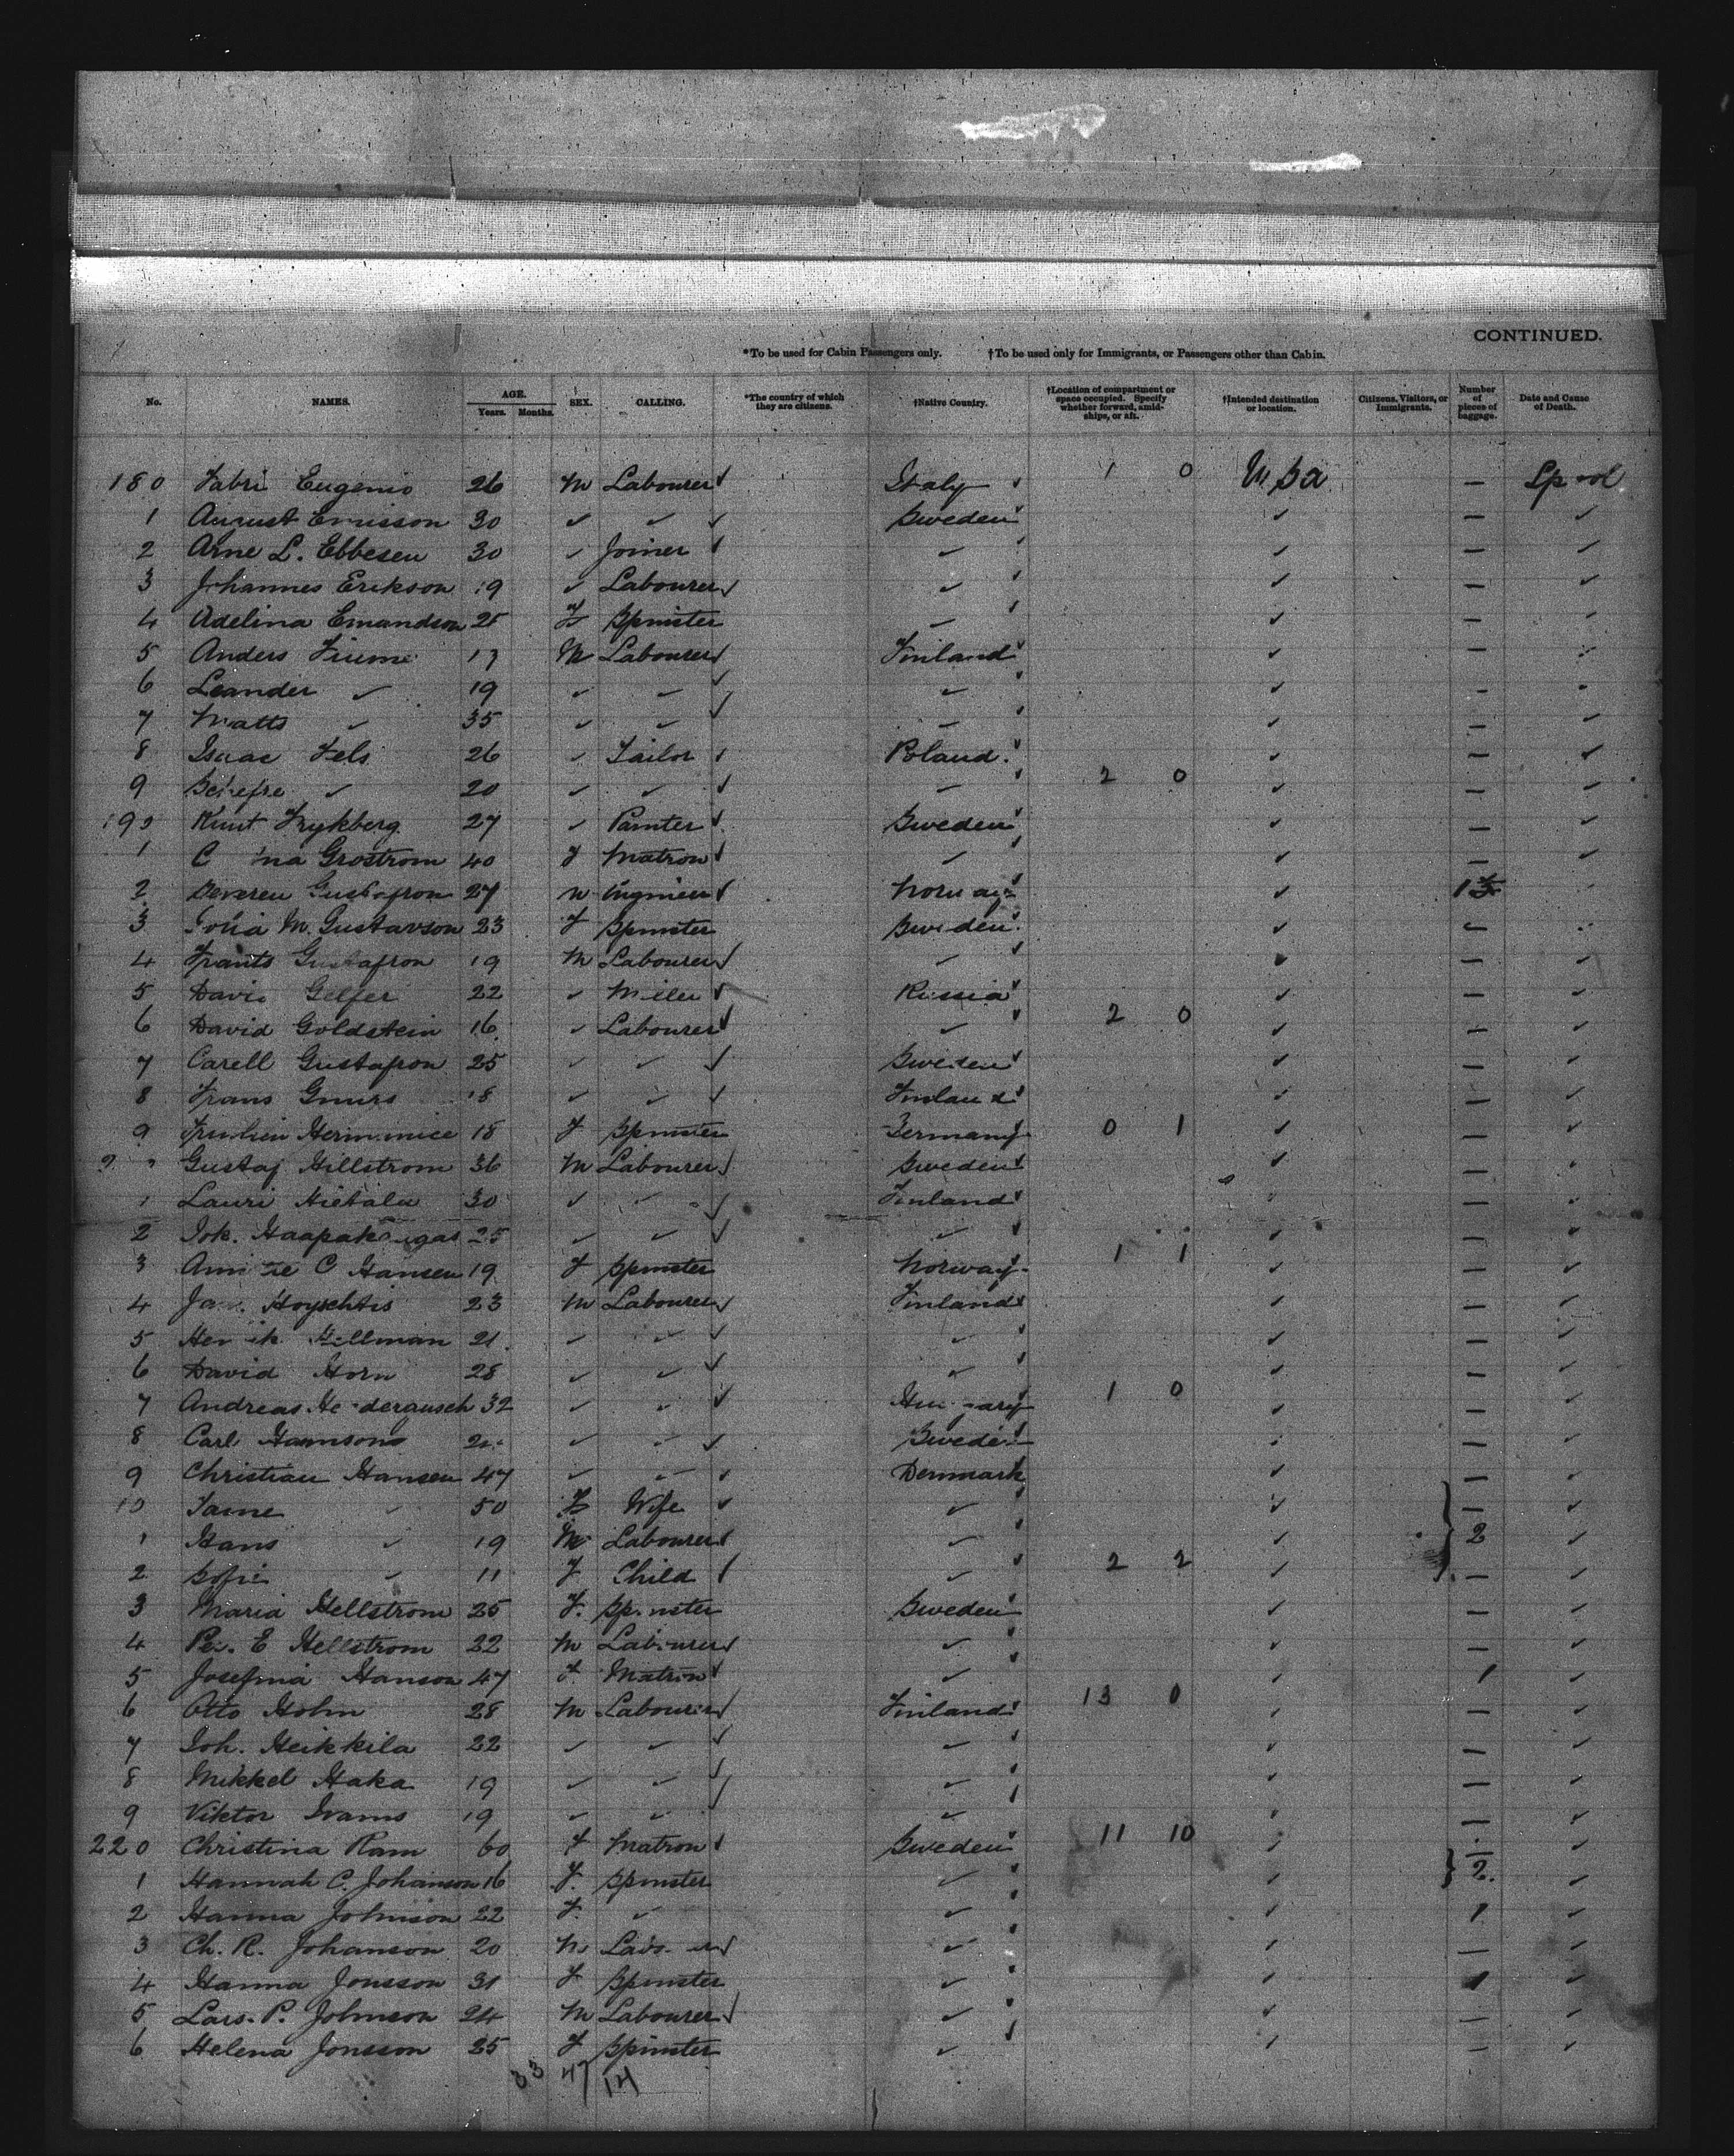 CONTINUED.
*To be used for Cabin Passengers only. †To be used only for Immigrants, or Passengers other than Cabin.
No. NAMES. AGE. Years. Months. SEX. CALLING. *The country of which they are citizens. †Native Country. †Location of compartment or space occupied. Specify whether forward, amidships, or aft. †Intended destination or location. Citizens, Visitors, or Immigrants. Number of pieces of baggage. Date and Cause of Death.
180 Fabri Eugenio 26 M Labourer ✓ Italy ✓ 1 0 USA — Lpool
1 August 30 ✓ ✓ ✓ Sweden ✓ ✓ — ✓
2 Arne L. Ebbesen 30 ✓ Joiner ✓ ✓ ✓ — ✓
3 Johannes Erikson 19 ✓ Labourer ✓ ✓ ✓ — ✓
4 Adelina Emandson 25 F Spinster ✓ ✓ — ✓
5 Anders M Labourer ✓ Finland ✓ ✓ — ✓
6 Leander ✓ 19 ✓ ✓ ✓ ✓ ✓ — ✓
7 Matts ✓ 35 ✓ ✓ ✓ ✓ ✓ — ✓
8 Isaac Fels 26 ✓ Tailor ✓ Poland. ✓ ✓ — ✓
9 ✓ 20 ✓ ✓ ✓ ✓ 2 0 ✓ — ✓
190 Knut Frykberg 27 ✓ Painter ✓ Sweden ✓ ✓ — ✓
1 Grostrom 40 F Matron ✓ ✓ ✓ — ✓
2 Gustafson 27 M Engineer ✓ Norway ✓ ✓
3 M. Gustavson 23 F Spinster Sweden ✓ — ✓
4 Frants Gustafson 19 M Labourer ✓ ✓ ✓ — ✓
5 David Gelfer 22 ✓ ✓ Russia ✓ ✓ — ✓
6 David Goldstein 16 ✓ Labourer ✓ ✓ 2 0 ✓ — ✓
7 Carell Gustafson 25 ✓ ✓ ✓ Sweden ✓ ✓ — ✓
8 Frans 18 ✓ ✓ ✓ Finland ✓ ✓ — ✓
9 18 F Spinster Germany 0 1 ✓ — ✓
Gustaf Hillstrom 36 M Labourer ✓ Sweden ✓ ✓ — ✓
1 Lauri Hietala 30 ✓ ✓ ✓ Finland ✓ ✓ — ✓
2 Joh. Haapakangas 25 ✓ ✓ ✓ ✓ ✓ — ✓
3 C Hansen 19 F Spinster Norway 1 1 ✓ — ✓
4 23 M Labourer ✓ Finland ✓ ✓ — ✓
5 Henrik Hellman 21 ✓ ✓ ✓ ✓ ✓ — ✓
6 David Horn 28 ✓ ✓ ✓ ✓ ✓ — ✓
7 Andreas 32 ✓ ✓ ✓ Hungary 1 0 ✓ — ✓
8 Carl ✓ ✓ ✓ Sweden ✓ — ✓
9 Christian Hansen 47 ✓ ✓ ✓ Denmark ✓ — ✓
10 ✓ 50 F Wife ✓ ✓ ✓ — ✓
1 Hans ✓ 19 M Labourer ✓ ✓ ✓ 2 ✓
2 Sofie ✓ 11 F Child ✓ ✓ 2 2 ✓ — ✓
3 Maria Hellstrom 25 F. Spinster Sweden ✓ — ✓
4 Per. E Hellstrom 22 M Labourer ✓ ✓ ✓ — ✓
5 Josefina Hanson 47 F. Matron ✓ ✓ ✓ 1 ✓
6 Otto Holm 28 M Labourer ✓ Finland ✓ 13 0 ✓ — ✓
7 Joh. Heikkila 22 ✓ ✓ ✓ ✓ ✓ — ✓
8 Mikkel Haka 19 ✓ ✓ ✓ ✓ ✓ — ✓
9 Viktor 19 ✓ ✓ ✓ ✓ ✓ — ✓
220 Christina Ram 60 F Matron ✓ Sweden ✓ 11 10 ✓ — ✓
1 Hannah C. Johanson 16 F. Spinster ✓ ✓ 2. ✓
2 Hanna Johnson 22 F. ✓ ✓ ✓ 1 ✓
3 Ch. R. Johanson 20 M Labourer ✓ ✓ ✓ — ✓
4 Hanna Jonsson 31 F Spinster ✓ ✓ 1 ✓
5 Lars. P. Johnson 24 M Labourer ✓ ✓ ✓ — ✓
6 Helena Jonsson 25 F Spinster ✓ ✓ — ✓
33 47 14